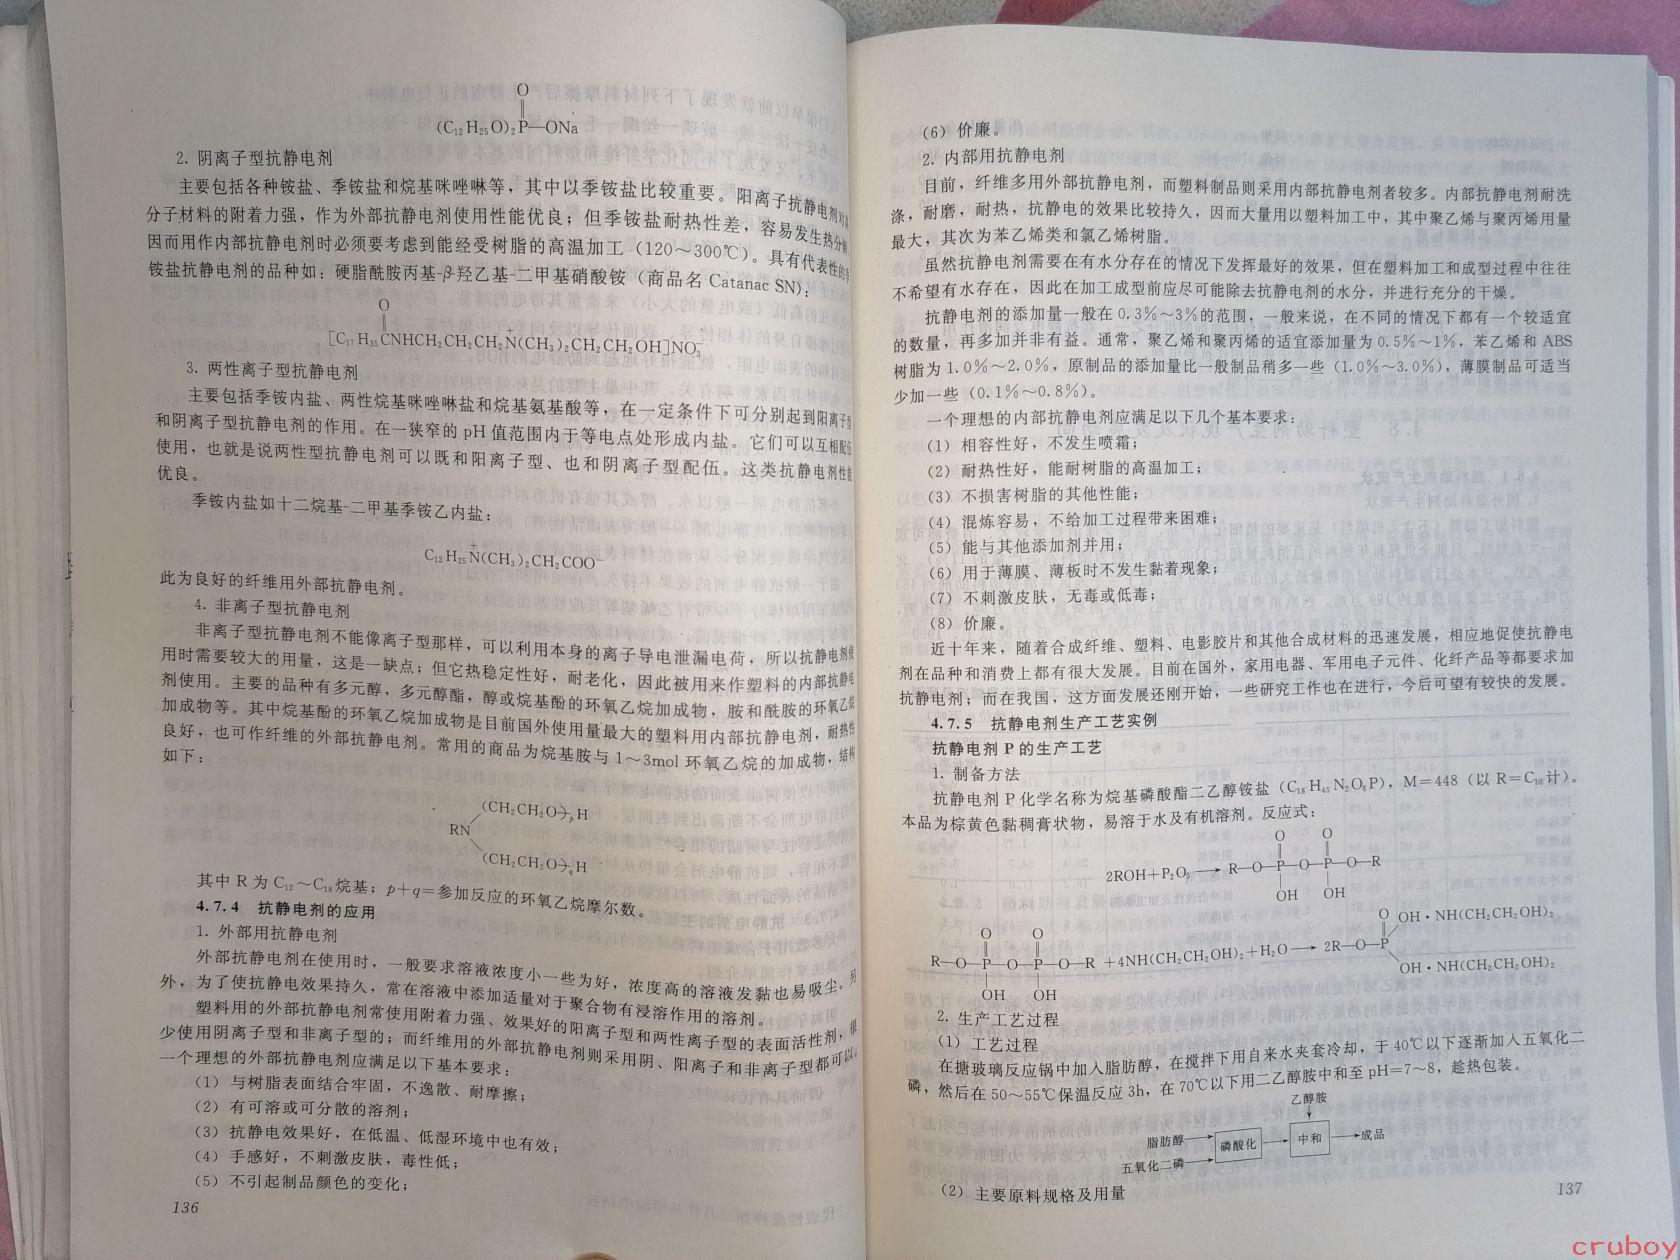 O
(C₁₂H₂₅O)₂P—ONa
2. 阴离子型抗静电剂
主要包括各种铵盐、季铵盐和烷基咪唑啉等，其中以季铵盐比较重要。阳离子抗静电剂对高
分子材料的附着力强，作为外部抗静电剂使用性能优良；但季铵盐耐热性差，容易发生热分解，
因而用作内部抗静电剂时必须要考虑到能经受树脂的高温加工（120～300℃）。具有代表性的季
铵盐抗静电剂的品种如：硬脂酰胺丙基-β-羟乙基-二甲基硝酸铵（商品名 Catanac SN）：
O
[C₁₇H₃₅CNHCH₂CH₂CH₂N⁺(CH₃)₂CH₂CH₂OH]NO₃⁻
3. 两性离子型抗静电剂
主要包括季铵内盐、两性烷基咪唑啉盐和烷基氨基酸等，在一定条件下可分别起到阳离子型
和阴离子型抗静电剂的作用。在一狭窄的 pH 值范围内于等电点处形成内盐。它们可以互相配伍
使用，也就是说两性型抗静电剂可以既和阳离子型、也和阴离子型配伍。这类抗静电剂性能
优良。
季铵内盐如十二烷基-二甲基季铵乙内盐：
C₁₂H₂₅N⁺(CH₃)₂CH₂COO⁻
此为良好的纤维用外部抗静电剂。
4. 非离子型抗静电剂
非离子型抗静电剂不能像离子型那样，可以利用本身的离子导电泄漏电荷，所以抗静电剂使
用时需要较大的用量，这是一缺点；但它热稳定性好，耐老化，因此被用来作塑料的内部抗静电
剂使用。主要的品种有多元醇，多元醇酯，醇或烷基酚的环氧乙烷加成物，胺和酰胺的环氧乙烷
加成物等。其中烷基酚的环氧乙烷加成物是目前国外使用量最大的塑料用内部抗静电剂，耐热性
良好，也可作纤维的外部抗静电剂。常用的商品为烷基胺与 1～3mol 环氧乙烷的加成物，结构
如下：
(CH₂CH₂O)ₚH
RN
(CH₂CH₂O)qH
其中 R 为 C₁₂～C₁₈烷基；p+q=参加反应的环氧乙烷摩尔数。
4.7.4 抗静电剂的应用
1. 外部用抗静电剂
外部抗静电剂在使用时，一般要求溶液浓度小一些为好，浓度高的溶液发黏也易吸尘。另
外，为了使抗静电效果持久，常在溶液中添加适量对于聚合物有浸溶作用的溶剂。
塑料用的外部抗静电剂常使用附着力强、效果好的阳离子型和两性离子型的表面活性剂，很
少使用阴离子型和非离子型的；而纤维用的外部抗静电剂则采用阴、阳离子和非离子型都可以。
一个理想的外部抗静电剂应满足以下基本要求：
（1）与树脂表面结合牢固，不逸散、耐摩擦；
（2）有可溶或可分散的溶剂；
（3）抗静电效果好，在低温、低湿环境中也有效；
（4）手感好，不刺激皮肤，毒性低；
（5）不引起制品颜色的变化；
136
（6）价廉。
2. 内部用抗静电剂
目前，纤维多用外部抗静电剂，而塑料制品则采用内部抗静电剂者较多。内部抗静电剂耐洗
涤，耐磨，耐热，抗静电的效果比较持久，因而大量用以塑料加工中，其中聚乙烯与聚丙烯用量
最大，其次为苯乙烯类和氯乙烯树脂。
虽然抗静电剂需要在有水分存在的情况下发挥最好的效果，但在塑料加工和成型过程中往往
不希望有水存在，因此在加工成型前应尽可能除去抗静电剂的水分，并进行充分的干燥。
抗静电剂的添加量一般在 0.3%～3%的范围，一般来说，在不同的情况下都有一个较适宜
的数量，再多加并非有益。通常，聚乙烯和聚丙烯的适宜添加量为 0.5%～1%，苯乙烯和 ABS
树脂为 1.0%～2.0%，原制品的添加量比一般制品稍多一些（1.0%～3.0%），薄膜制品可适当
少加一些（0.1%～0.8%）。
一个理想的内部抗静电剂应满足以下几个基本要求：
（1）相容性好，不发生喷霜；
（2）耐热性好，能耐树脂的高温加工；
（3）不损害树脂的其他性能；
（4）混炼容易，不给加工过程带来困难；
（5）能与其他添加剂并用；
（6）用于薄膜、薄板时不发生黏着现象；
（7）不刺激皮肤，无毒或低毒；
（8）价廉。
近十年来，随着合成纤维、塑料、电影胶片和其他合成材料的迅速发展，相应地促使抗静电
剂在品种和消费上都有很大发展。目前在国外，家用电器、军用电子元件、化纤产品等都要求加
抗静电剂；而在我国，这方面发展还刚开始，一些研究工作也在进行，今后可望有较快的发展。
4.7.5 抗静电剂生产工艺实例
抗静电剂 P 的生产工艺
1. 制备方法
抗静电剂 P 化学名称为烷基磷酸酯二乙醇铵盐（C₁₈H₄₅N₂O₈P），M=448（以 R=C₁₀计）。
本品为棕黄色黏稠膏状物，易溶于水及有机溶剂。反应式：
O O
2ROH+P₂O₅→R—O—P—O—P—O—R
OH OH
O O O OH·NH(CH₂CH₂OH)₂
R—O—P—O—P—O—R+4NH(CH₂CH₂OH)₂+H₂O→2R—O—P
OH OH OH·NH(CH₂CH₂OH)₂
2. 生产工艺过程
（1）工艺过程
在搪玻璃反应锅中加入脂肪醇，在搅拌下用自来水夹套冷却，于 40℃以下逐渐加入五氧化二
磷，然后在 50～55℃保温反应 3h，在 70℃以下用二乙醇胺中和至 pH=7～8，趁热包装。
乙醇胺
脂肪醇→磷酸化→中和→成品
五氧化二磷
（2）主要原料规格及用量
137
cruboy